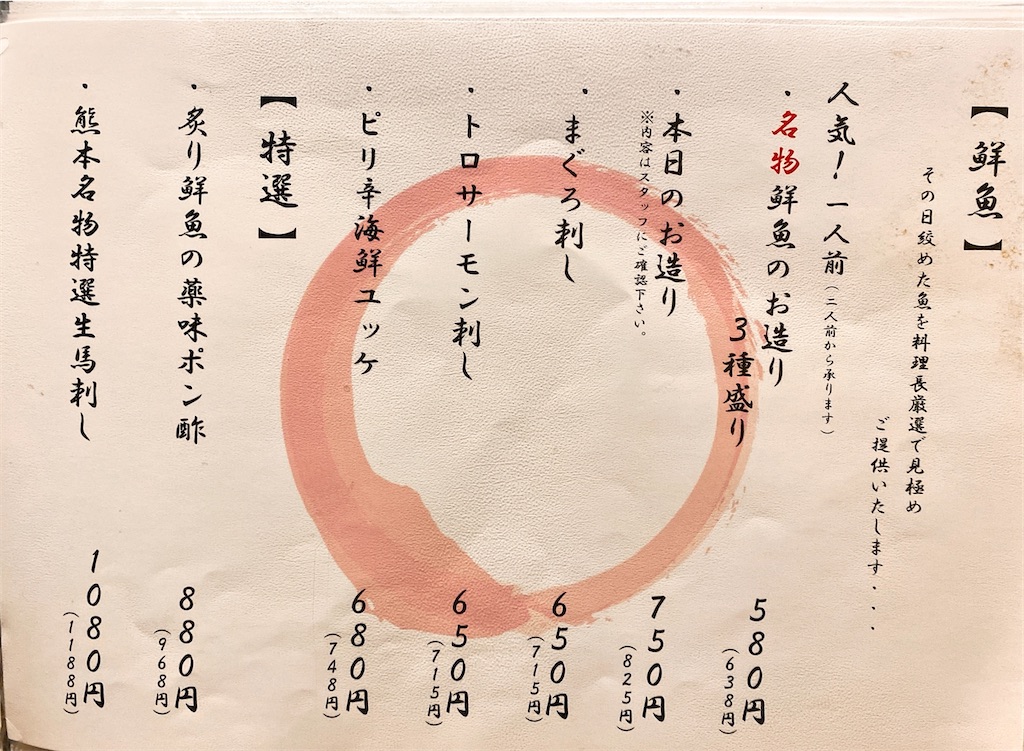 【鮮魚】
その日絞めた魚を料理長厳選で見極め
ご提供いたします・・・
人気！一人前（二人前から承ります）
・名物鮮魚のお造り
３種盛り
580円
（638円）
・本日のお造り
※内容はスタッフにご確認下さい。
750円
（825円）
・まぐろ刺し
650円
（715円）
・トロサーモン刺し
650円
（715円）
・ピリ辛海鮮ユッケ
680円
（748円）
【特選】
・炙り鮮魚の薬味ポン酢
880円
（968円）
・熊本名物特選生馬刺し
1080円
（1188円）